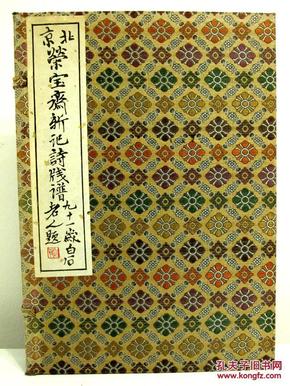 北京
榮宝斋新记詩牋譜
九十一歲白石
老人題
孔夫子旧书网